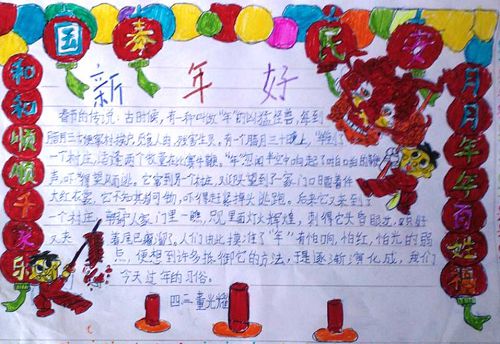 国泰民安
新年好
和和顺顺千家乐
月月年年百姓福
春节的传说：古时候，有一种叫做"年"的凶猛怪兽，每到
腊月三十便家村挨户，觅食人肉，残害生灵。有一个腊月三十晚上，"年"到了
一个村庄，适逢两个牧童在比赛牛鞭。"年"忽闻半空中响起了啪啪的鞭
声，吓得望风而逃。它窜到另一个村庄，又迎头望到了一家门口晒着件
大红衣裳，它不知其为何物，吓得赶紧掉头逃跑。后来它又来到了
一个村庄，朝一户人家门里一瞧，只见里面灯火辉煌，刺得它头昏眼花，只好
又夹着尾巴溜了。人们由此摸准了"年"有怕响，怕红，怕光的弱
点，便想到许多抵御它的方法，于是逐渐演化成，我们
今天过年的习俗。
四二 董光耀